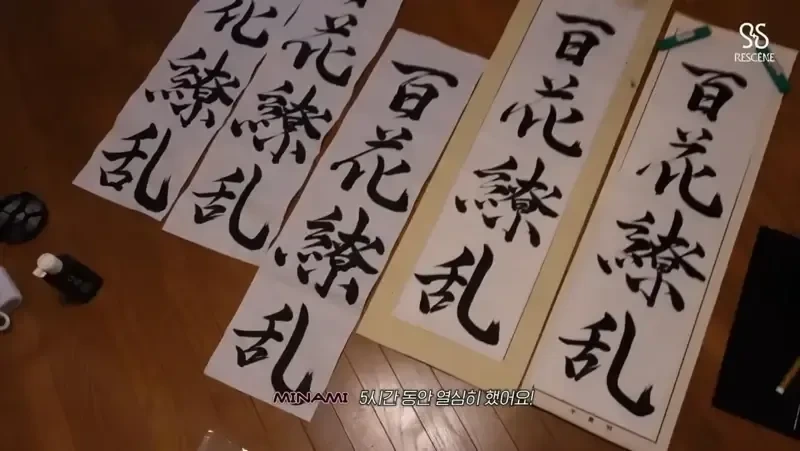 花
繚
乱
百
花
繚
乱
百
花
繚
乱
百
花
繚
乱
百
花
繚
乱
SS
RESCENE
MINAMI 5시간 동안 열심히 했어요!